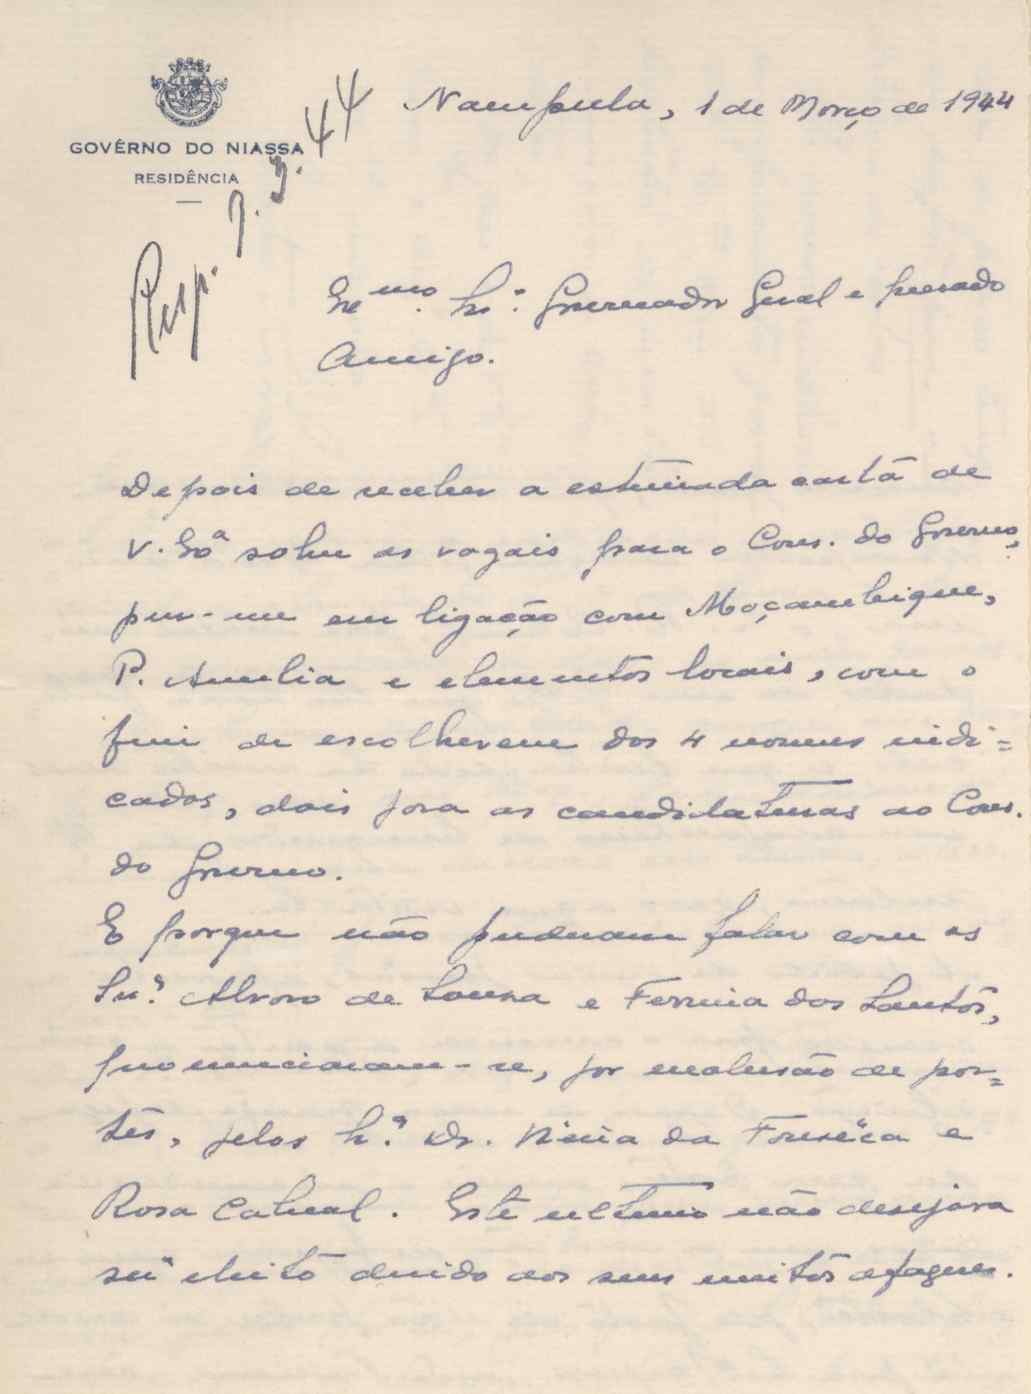 GOVÊRNO DO NIASSA
RESIDÊNCIA
Resp. 7.3.44
Nampula, 1 de Março de 1944
Exmo. Sr. Governador Geral e prezado
Amigo.
Depois de receber a estimada carta de
V. Exª sobre os vogais para o Cons. do Governo,
puz-me em ligação com Moçambique,
P. Amelia e elementos locais, com o
fim de escolherem dos 4 nomes indi=
cados, dois para as candidaturas ao Cons.
do Governo.
E porque não puderam falar com os
Snrs. Alvaro de Souza e Ferreira dos Santos,
pronunciaram-se, por exclusão de par=
tes, pelos Srs. Dr. Vieira da Fonseca e
Rosa Cabral. Este ultimo não desejava
ser eleito devido aos seus muitos afazeres.